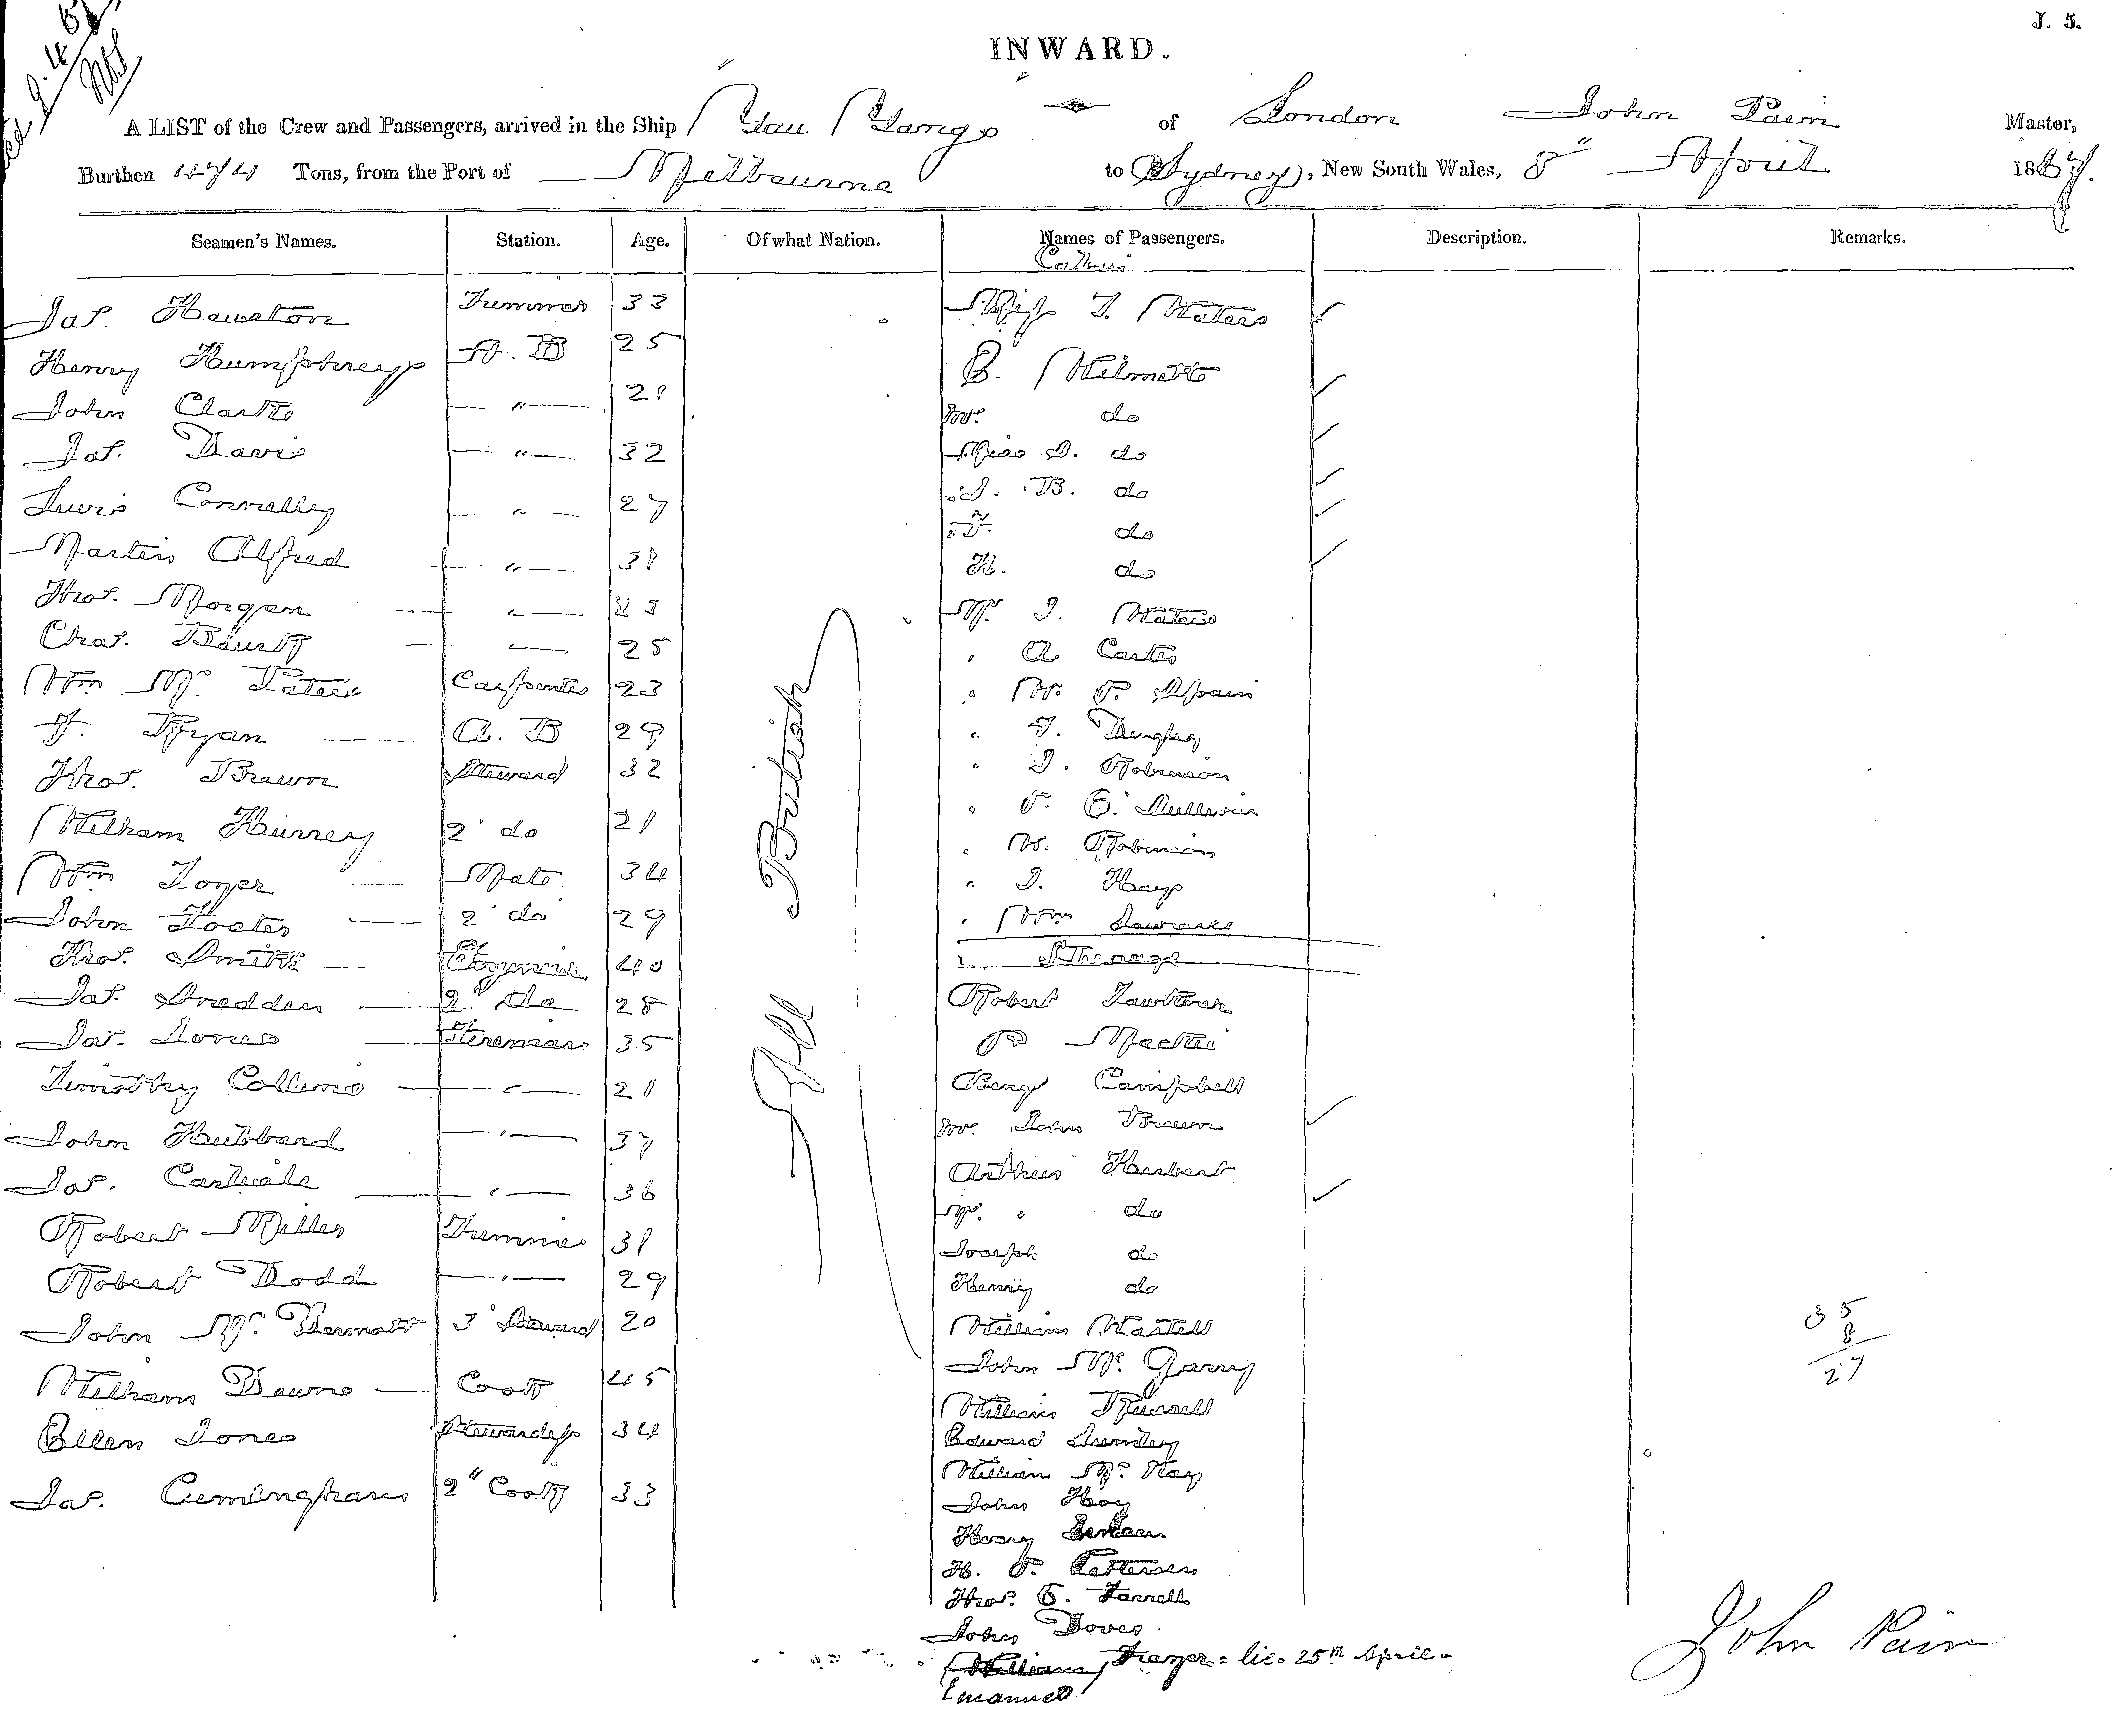 J. 5.
INWARD.
A LIST of the Crew and Passengers, arrived in the Ship You Yangs of London John Pain Master,
Burthen 474 Tons, from the Port of Melbourne to Sydney, New South Wales, 8" April 1867.
Seamen's Names. Station. Age. Of what Nation. Names of Passengers. Description. Remarks.
Jas. Trimmer 33
Henry Humphreys A. B 25
John Clarke — " — 21
Jas. Davis — " — 32
Lewis Connelly — " — 27
Martin Alfred — " — 31
Thos. Morgan — " —
Chas. — " — 25
Wm Mc. Carpenter 23
Ryan A. B 29
Thos. Brown Steward 32
William Hurrey 2 do 21
Wm Mate 34
John 2 do 29
Thos. Smith 40
Jas. 2 do 28
Jas. Jones Fireman 35
Timothy Collins — " — 21
John Hubbard — " — 37
Jas. Carlisle — " — 36
Robert Miller Trimmer 31
Robert Dodd — " — 29
John Mc. Dermott 3 Steward 20
William Cook 45
Ellen Jones Stewardess 34
Jas. Cunningham 2" Cook 33
All British
Miss J. Waters
E. Wilmott
Mr. do
Miss do
J. B. do
do
H. do
Mr. J. Waters
" A Carter
" W. Spain
" J.
" J. Robinson
" Sullivan
" W. Robinson
" J. Hays
" Wm
Steerage
Robert
Mackie
Campbell
Mr. John Brown
Arthur Herbert
" do
Joseph do
Henry do
William
John Mc. Garry
William Russell
Edward
William Mc. Kay
John Hoy
Henry
H. Patterson
Thos. E. Farrell
John
William Frazer = lic. 25th April.
Emanuel
35
8
27
John Pain